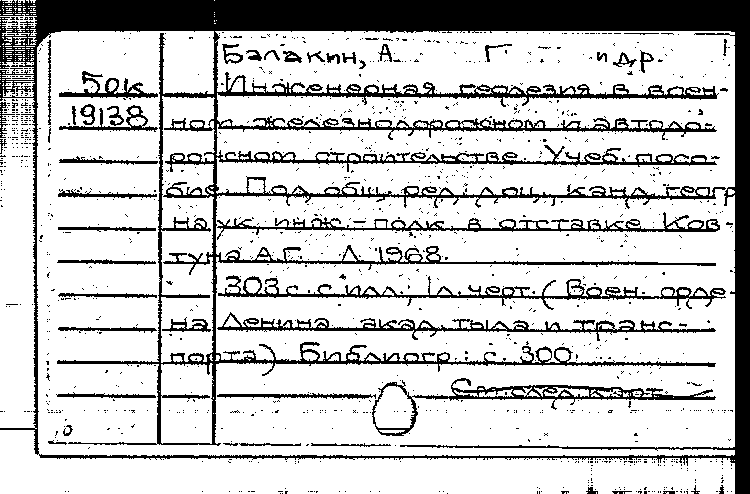 Балакин, А. Г. и др.
50к Инженерная геодезия в воен-
19138 ном, железнодорожном и автодо-
рожном строительстве. Учеб. посо-
бие. Под общ. ред. доц., канд. геогр.
наук, инж.-полк. в отставке Ков-
туна А.Г. Л, 1968.
303 с. с илл.; 1 л. черт. (Воен. орде-
на Ленина акад. тыла и транс-
порта) Библиогр.: с. 300.
См. след. карт.